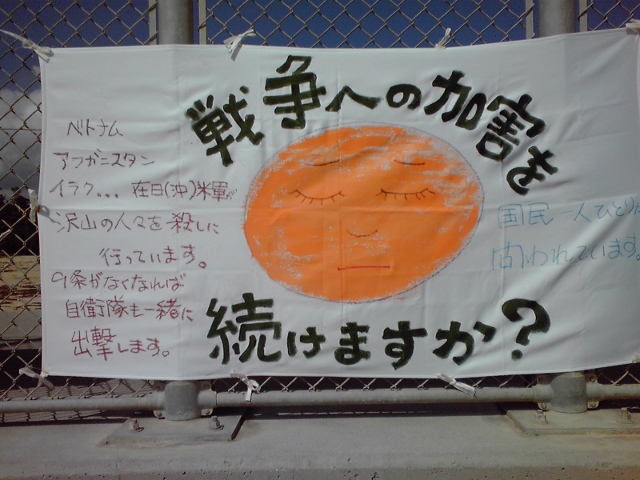 戦争への加害を
続けますか?
ベトナム
アフガニスタン
イラク... 在日(沖)米軍が
沢山の人々を殺しに
行っています。
9条がなくなれば
自衛隊も一緒に
出撃します。
国民一人ひとりが
問われています。